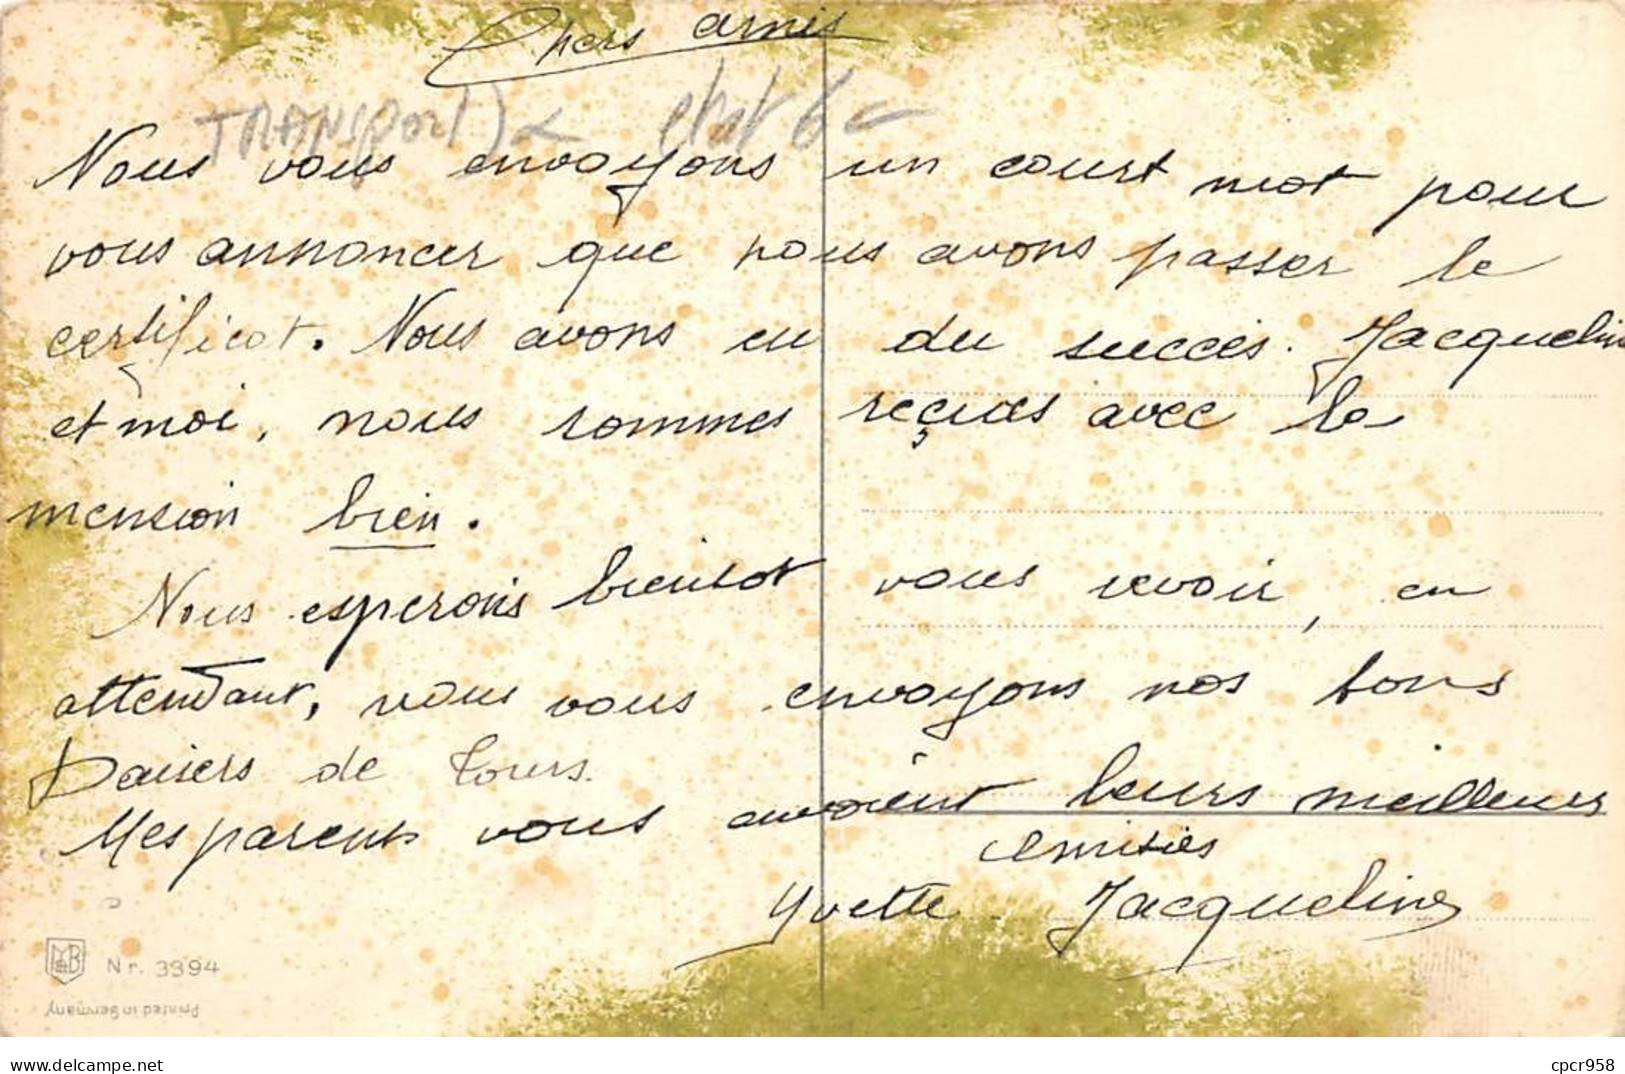 Chers amis
TRANSPORT
Nous vous envoyons un court mot pour
vous annoncer que nous avons passer le
certificat. Nous avons eu du succès. Jacqueline
et moi, nous sommes reçues avec la
mension bien.
Nous esperons bientot vous revoir, en
attendant, nous vous envoyons nos bons
Baisers de Tours.
Mes parents vous envoient leurs meilleurs
amitiés
Yvette Jacqueline
M&B Nr. 3394
Printed in Germany
delcampe.net
cpcr958